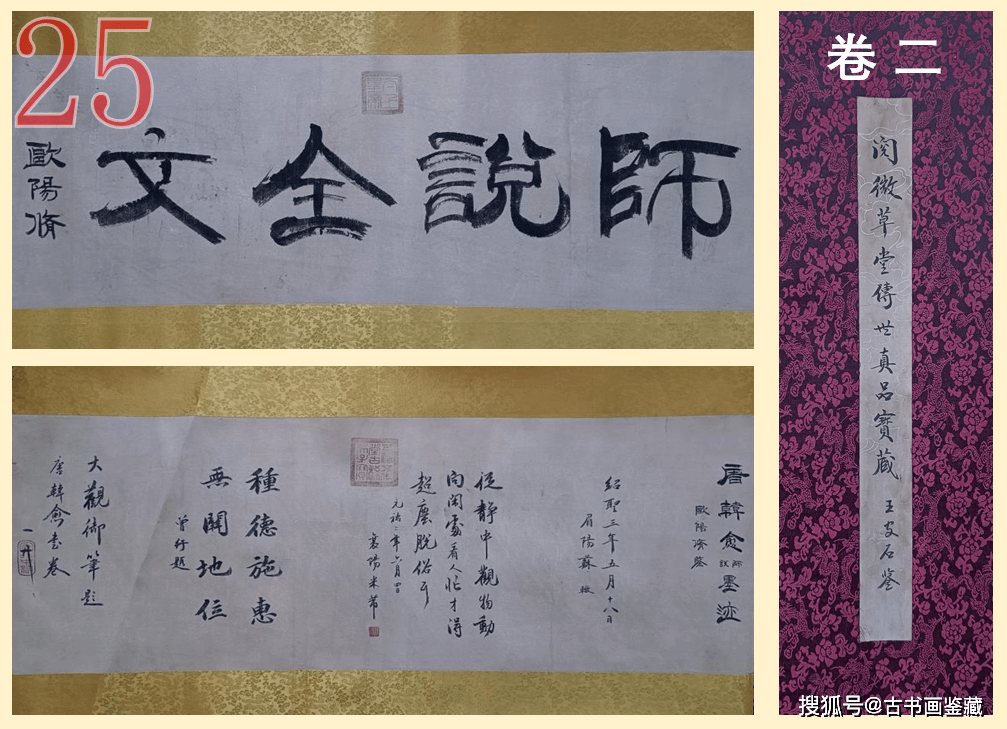 25
師說全文
歐陽脩
唐韓愈師說墨迹
歐陽脩鑒
紹聖三年五月十八日
眉陽蘇
從靜中觀物動
向閑處看人忙才得
超塵脫俗
元祐二年六月
襄陽米芾
種德施惠
無關地位
曾
題
大觀御筆題
唐韓愈書卷
卷二
閱微草堂傳世真品寶藏 王安石鑒
搜狐号@古书画鉴藏